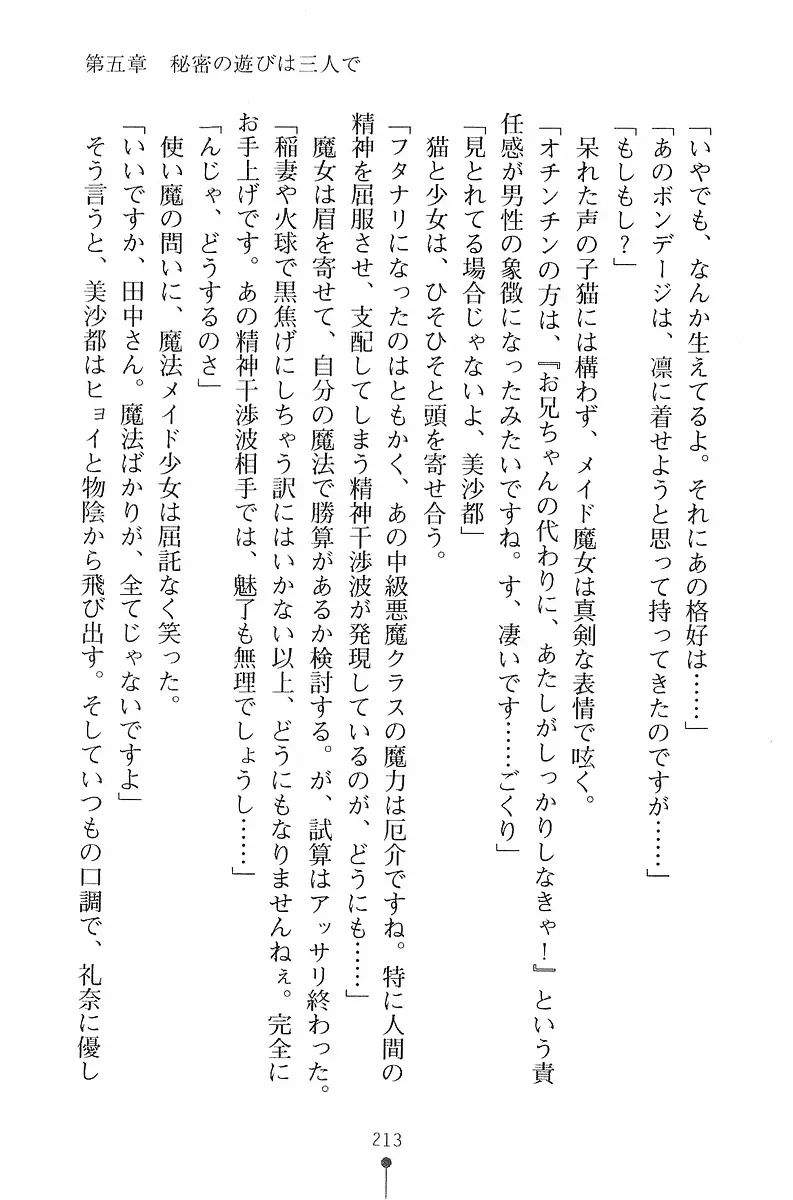 第五章　秘密の遊びは三人で
「いやでも、なんか生えてるよ。それにあの格好は……」
「あのボンデージは、凛に着せようと思って持ってきたのですが……」
「もしもし？」
　呆れた声の子猫には構わず、メイド魔女は真剣な表情で呟く。
「オチンチンの方は、『お兄ちゃんの代わりに、あたしがしっかりしなきゃ！』という責
任感が男性の象徴になったみたいですね。す、凄いです……ごくり」
「見とれてる場合じゃないよ、美沙都」
　猫と少女は、ひそひそと頭を寄せ合う。
「フタナリになったのはともかく、あの中級悪魔クラスの魔力は厄介ですね。特に人間の
精神を屈服させ、支配してしまう精神干渉波が発現しているのが、どうにも……」
　魔女は眉を寄せて、自分の魔法で勝算があるか検討する。が、試算はアッサリ終わった。
「稲妻や火球で黒焦げにしちゃう訳にはいかない以上、どうにもなりませんねぇ。完全に
お手上げです。あの精神干渉波相手では、魅了も無理でしょうし……」
「んじゃ、どうするのさ」
　使い魔の問いに、魔法メイド少女は屈託なく笑った。
「いいですか、田中さん。魔法ばかりが、全てじゃないですよ」
　そう言うと、美沙都はヒョイと物陰から飛び出す。そしていつもの口調で、礼奈に優し
213